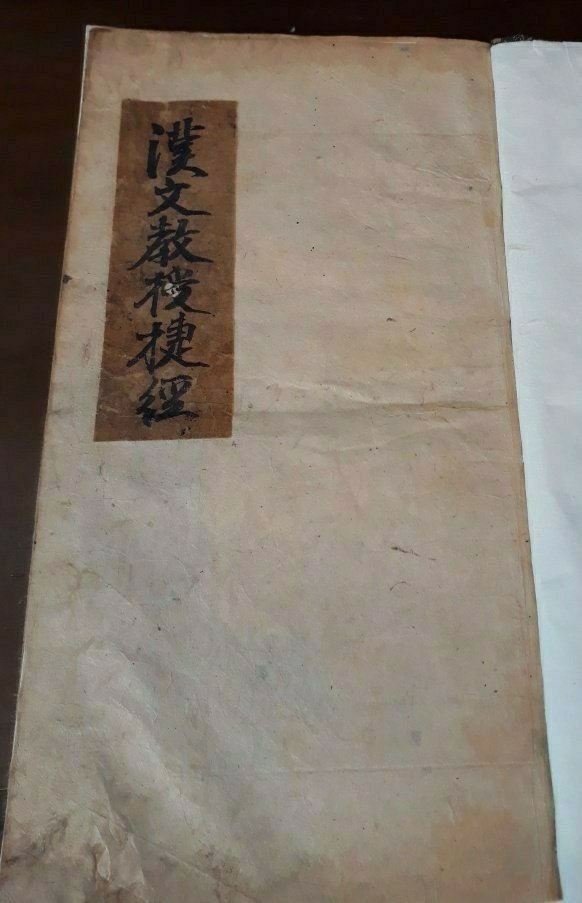 漢文教授捷經